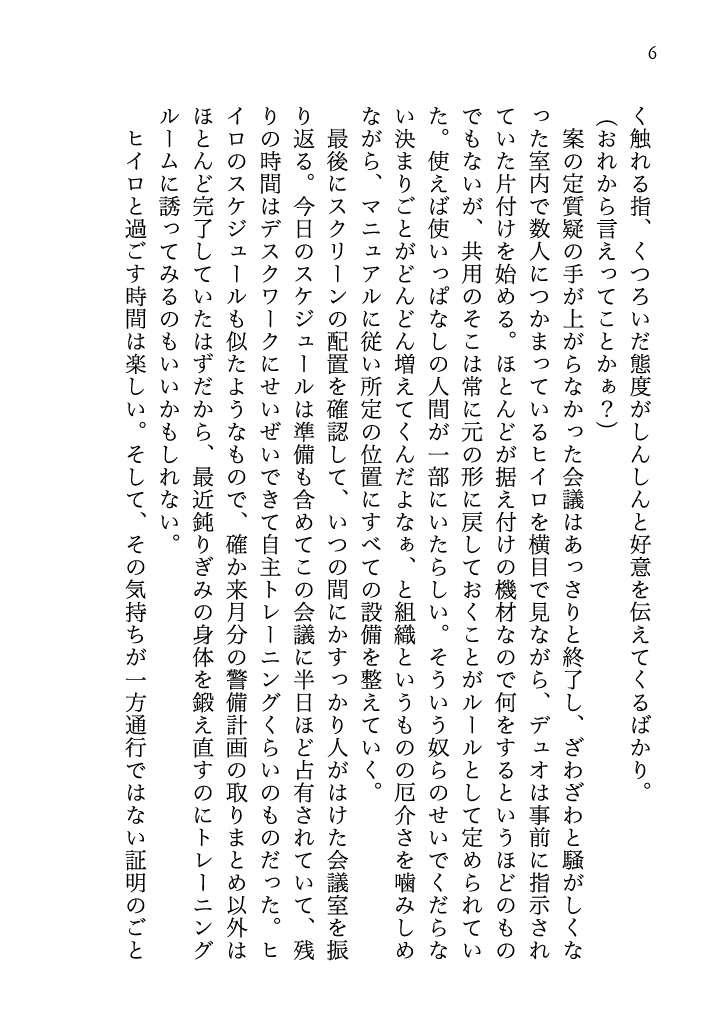 6
く触れる指、くつろいだ態度がしんしんと好意を伝えてくるばかり。
（おれから言えってことかぁ？）
　案の定質疑の手が上がらなかった会議はあっさりと終了し、ざわざわと騒がしくな
った室内で数人につかまっているヒイロを横目で見ながら、デュオは事前に指示され
ていた片付けを始める。ほとんどが据え付けの機材なので何をするというほどのもの
でもないが、共用のそこは常に元の形に戻しておくことがルールとして定められてい
た。使えば使いっぱなしの人間が一部にいたらしい。そういう奴らのせいでくだらな
い決まりごとがどんどん増えてくんだよなぁ、と組織というものの厄介さを噛みしめ
ながら、マニュアルに従い所定の位置にすべての設備を整えていく。
　最後にスクリーンの配置を確認して、いつの間にかすっかり人がはけた会議室を振
り返る。今日のスケジュールは準備も含めてこの会議に半日ほど占有されていて、残
りの時間はデスクワークにせいぜいできて自主トレーニングくらいのものだった。ヒ
イロのスケジュールも似たようなもので、確か来月分の警備計画の取りまとめ以外は
ほとんど完了していたはずだから、最近鈍りぎみの身体を鍛え直すのにトレーニング
ルームに誘ってみるのもいいかもしれない。
　ヒイロと過ごす時間は楽しい。そして、その気持ちが一方通行ではない証明のごと